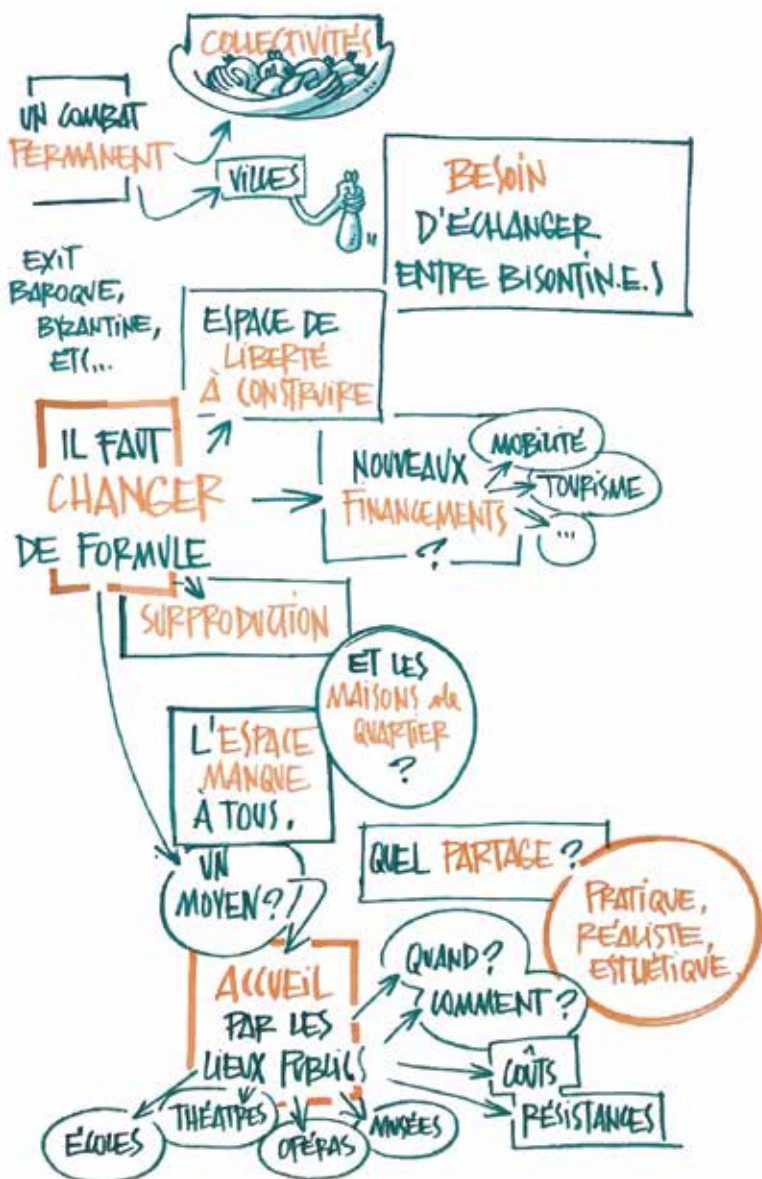 COLLECTIVITÉS
UN COMBAT
PERMANENT
VILLES
BESOIN
D'ÉCHANGER
ENTRE BISONTIN.E.S
EXIT
BAROQUE,
BYZANTINE,
ETC...
ESPACE DE
LIBERTÉ
À CONSTRUIRE
IL FAUT
CHANGER
DE FORMULE
NOUVEAUX
FINANCEMENTS
?
MOBILITÉ
TOURISME
...
SURPRODUCTION
ET LES
MAISONS de
QUARTIER
?
L'ESPACE
MANQUE
À TOUS.
UN
MOYEN?
QUEL PARTAGE ?
PRATIQUE,
RÉALISTE,
ESTHÉTIQUE.
ACCUEIL
PAR LES
LIEUX PUBLICS
QUAND?
COMMENT?
COÛTS
RÉSISTANCES
ÉCOLES
THÉATRES
OPÉRAS
MUSÉES